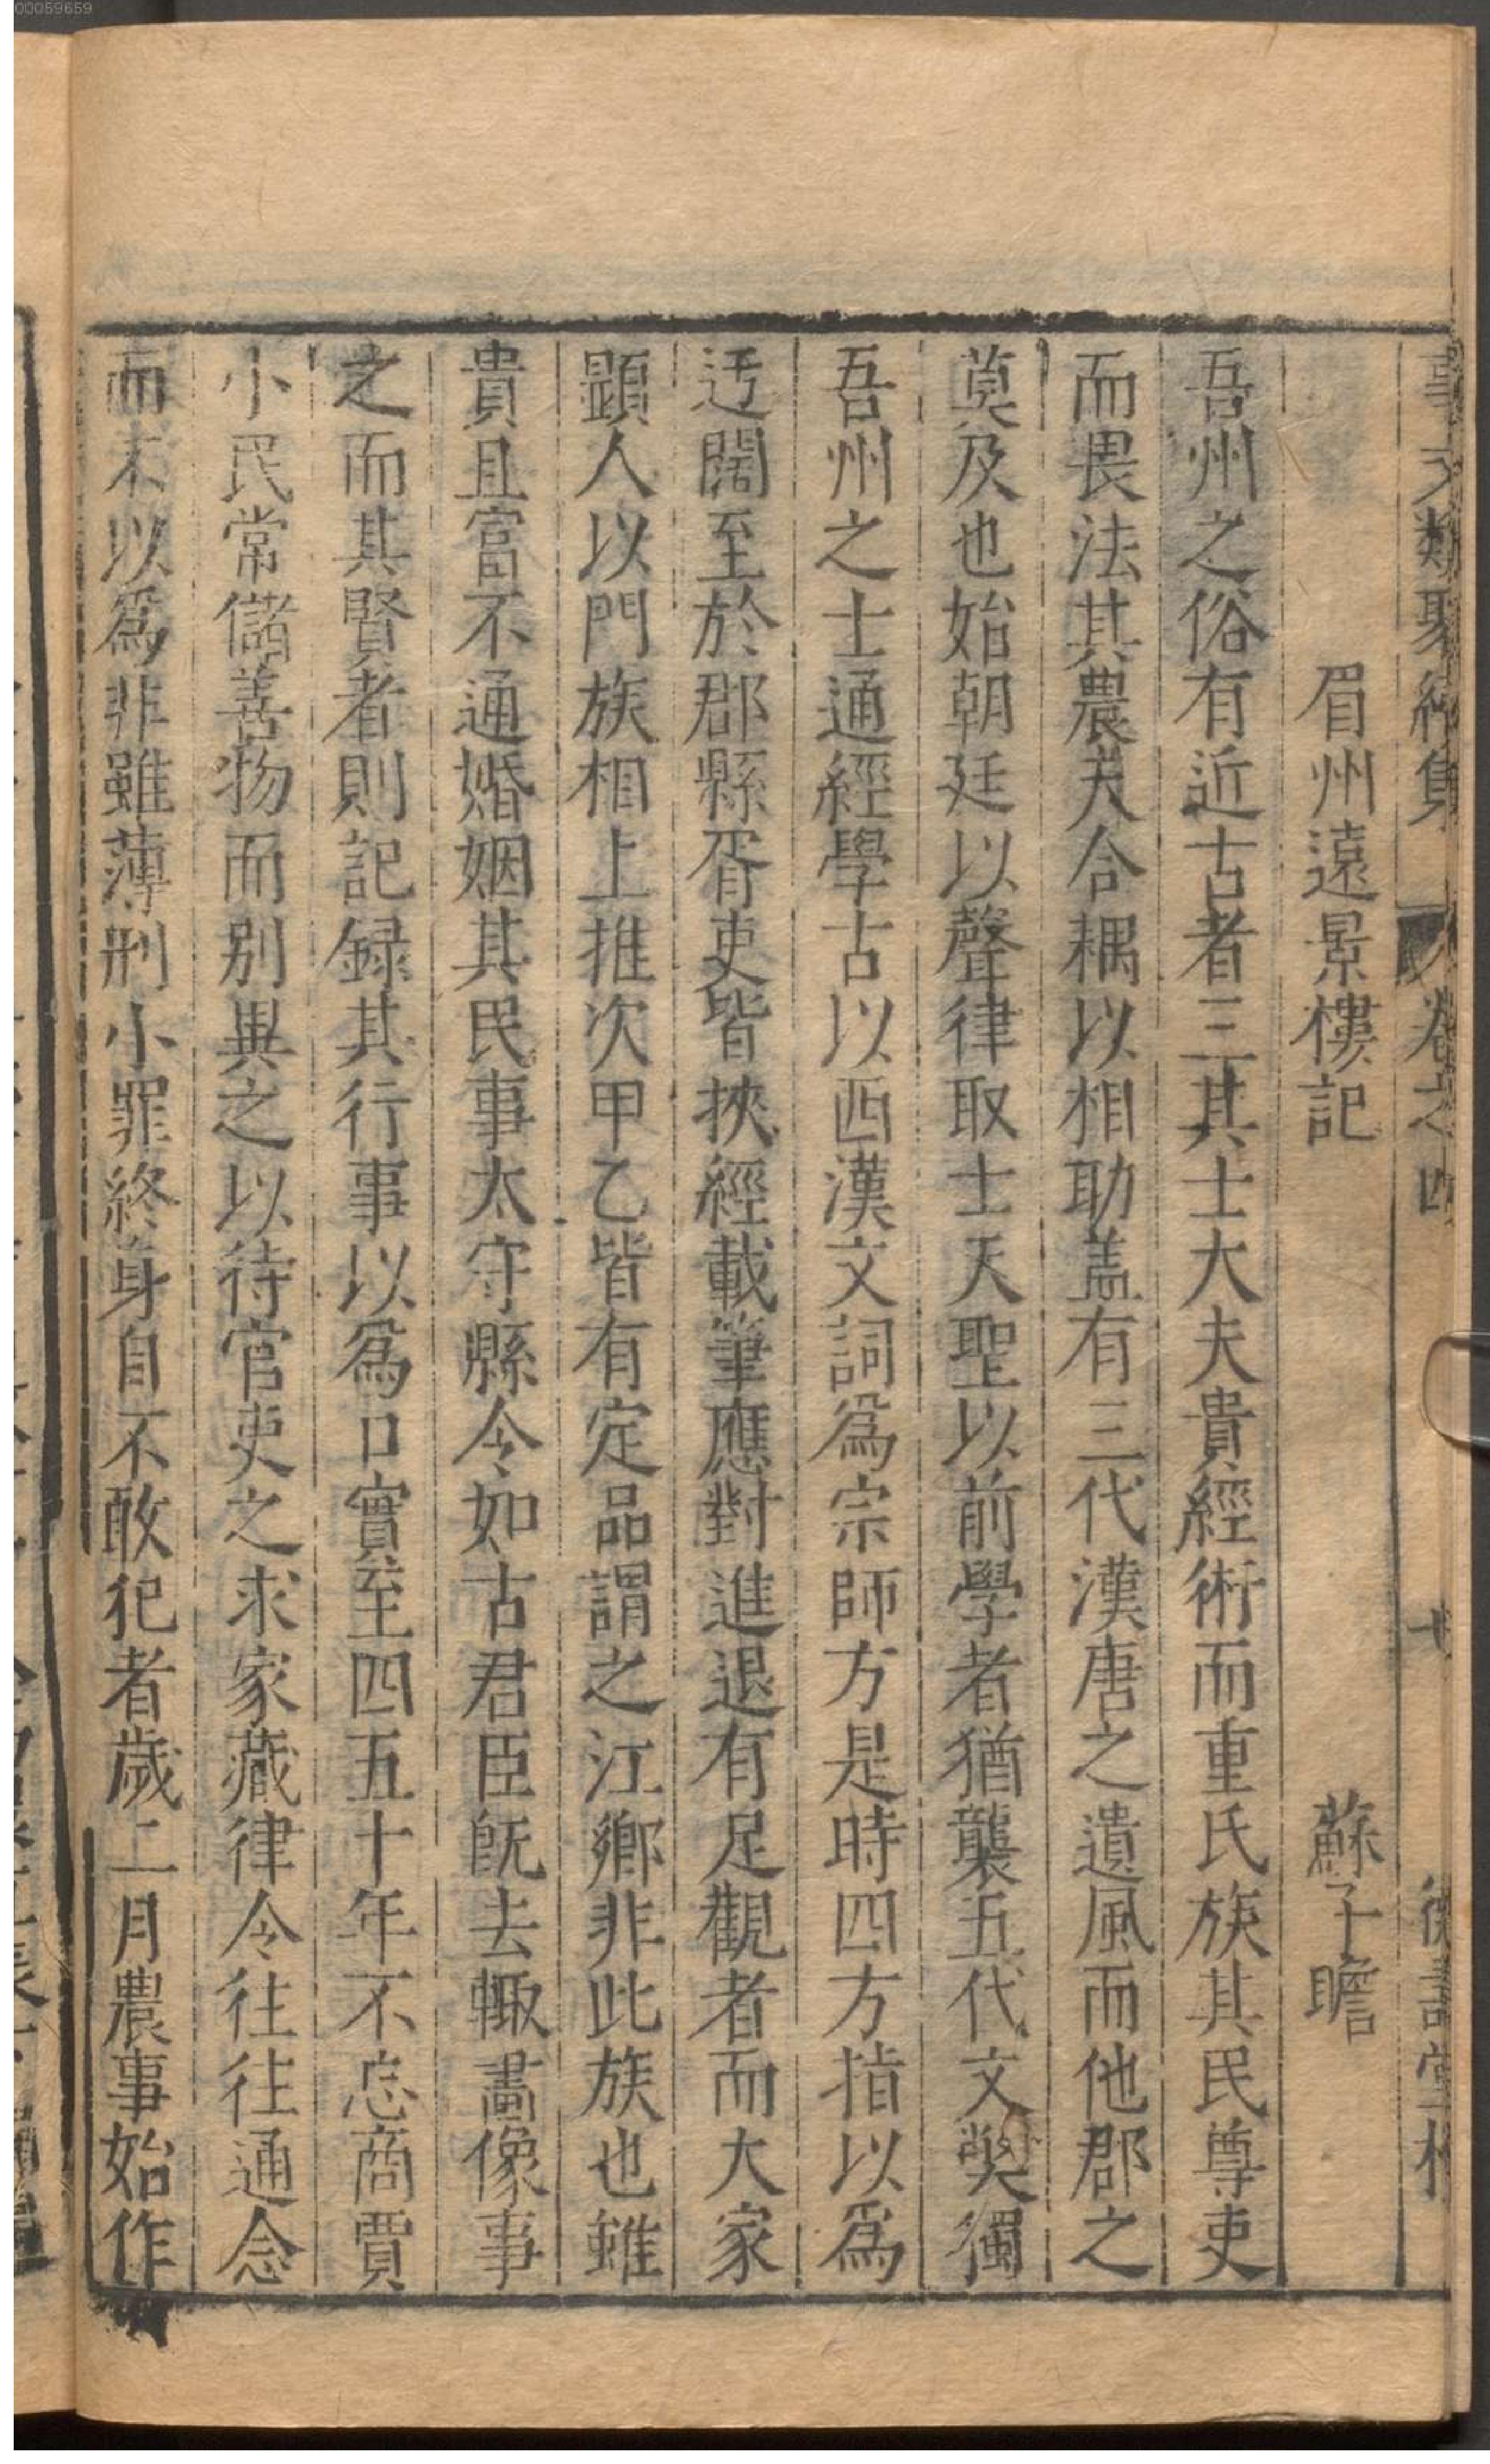 00059659
眉州遠景樓記
蘇子瞻
吾州之俗有近古者三其士大夫貴經術而重氏族其民尊吏
而畏法其農夫合耦以相助盖有三代漢唐之遺風而他郡之
莫及也始朝廷以聲律取士天聖以前學者猶襲五代文獘獨
吾州之士通經學古以西漢文詞爲宗師方是時四方指以爲
迃闊至於郡縣胥吏皆挾經載筆應對進退有足觀者而大家
顯人以門族相上推次甲乙皆有定品謂之江鄉非此族也雖
貴且富不通婚姻其民事太守縣令如古君臣旣去輙畵像事
之而其賢者則記録其行事以爲口實至四五十年不忘商賈
小民常儲善物而別異之以待官吏之求家藏律令往往通念
而不以爲非雖薄刑小罪終身自不敢犯者歲二月農事始作
事文類聚續集 卷之四